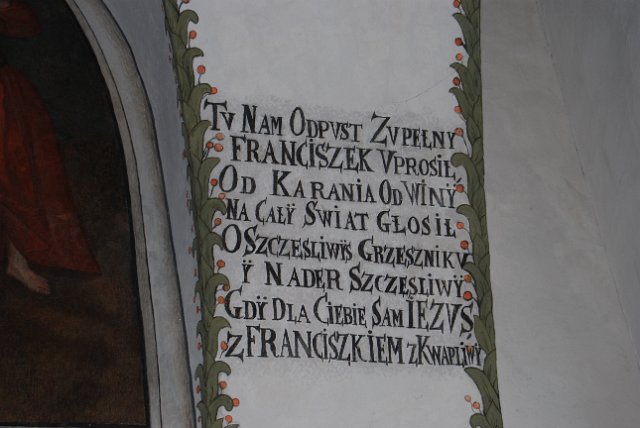 TV NAM ODPVST ZVPEŁNY
FRANCISZEK VPROSIŁ
OD KARANIA OD WINŸ
NA CAŁŸ SWIAT GŁOSIŁ
O SZCZĘSLIWŸS GRZESZNIKV
Ÿ NADER SZCZĘSLIWŸ
GDŸ DLA CIEBIE SAM IEZVS
Z FRANCISZKIEM ZKWAPLIWŸ